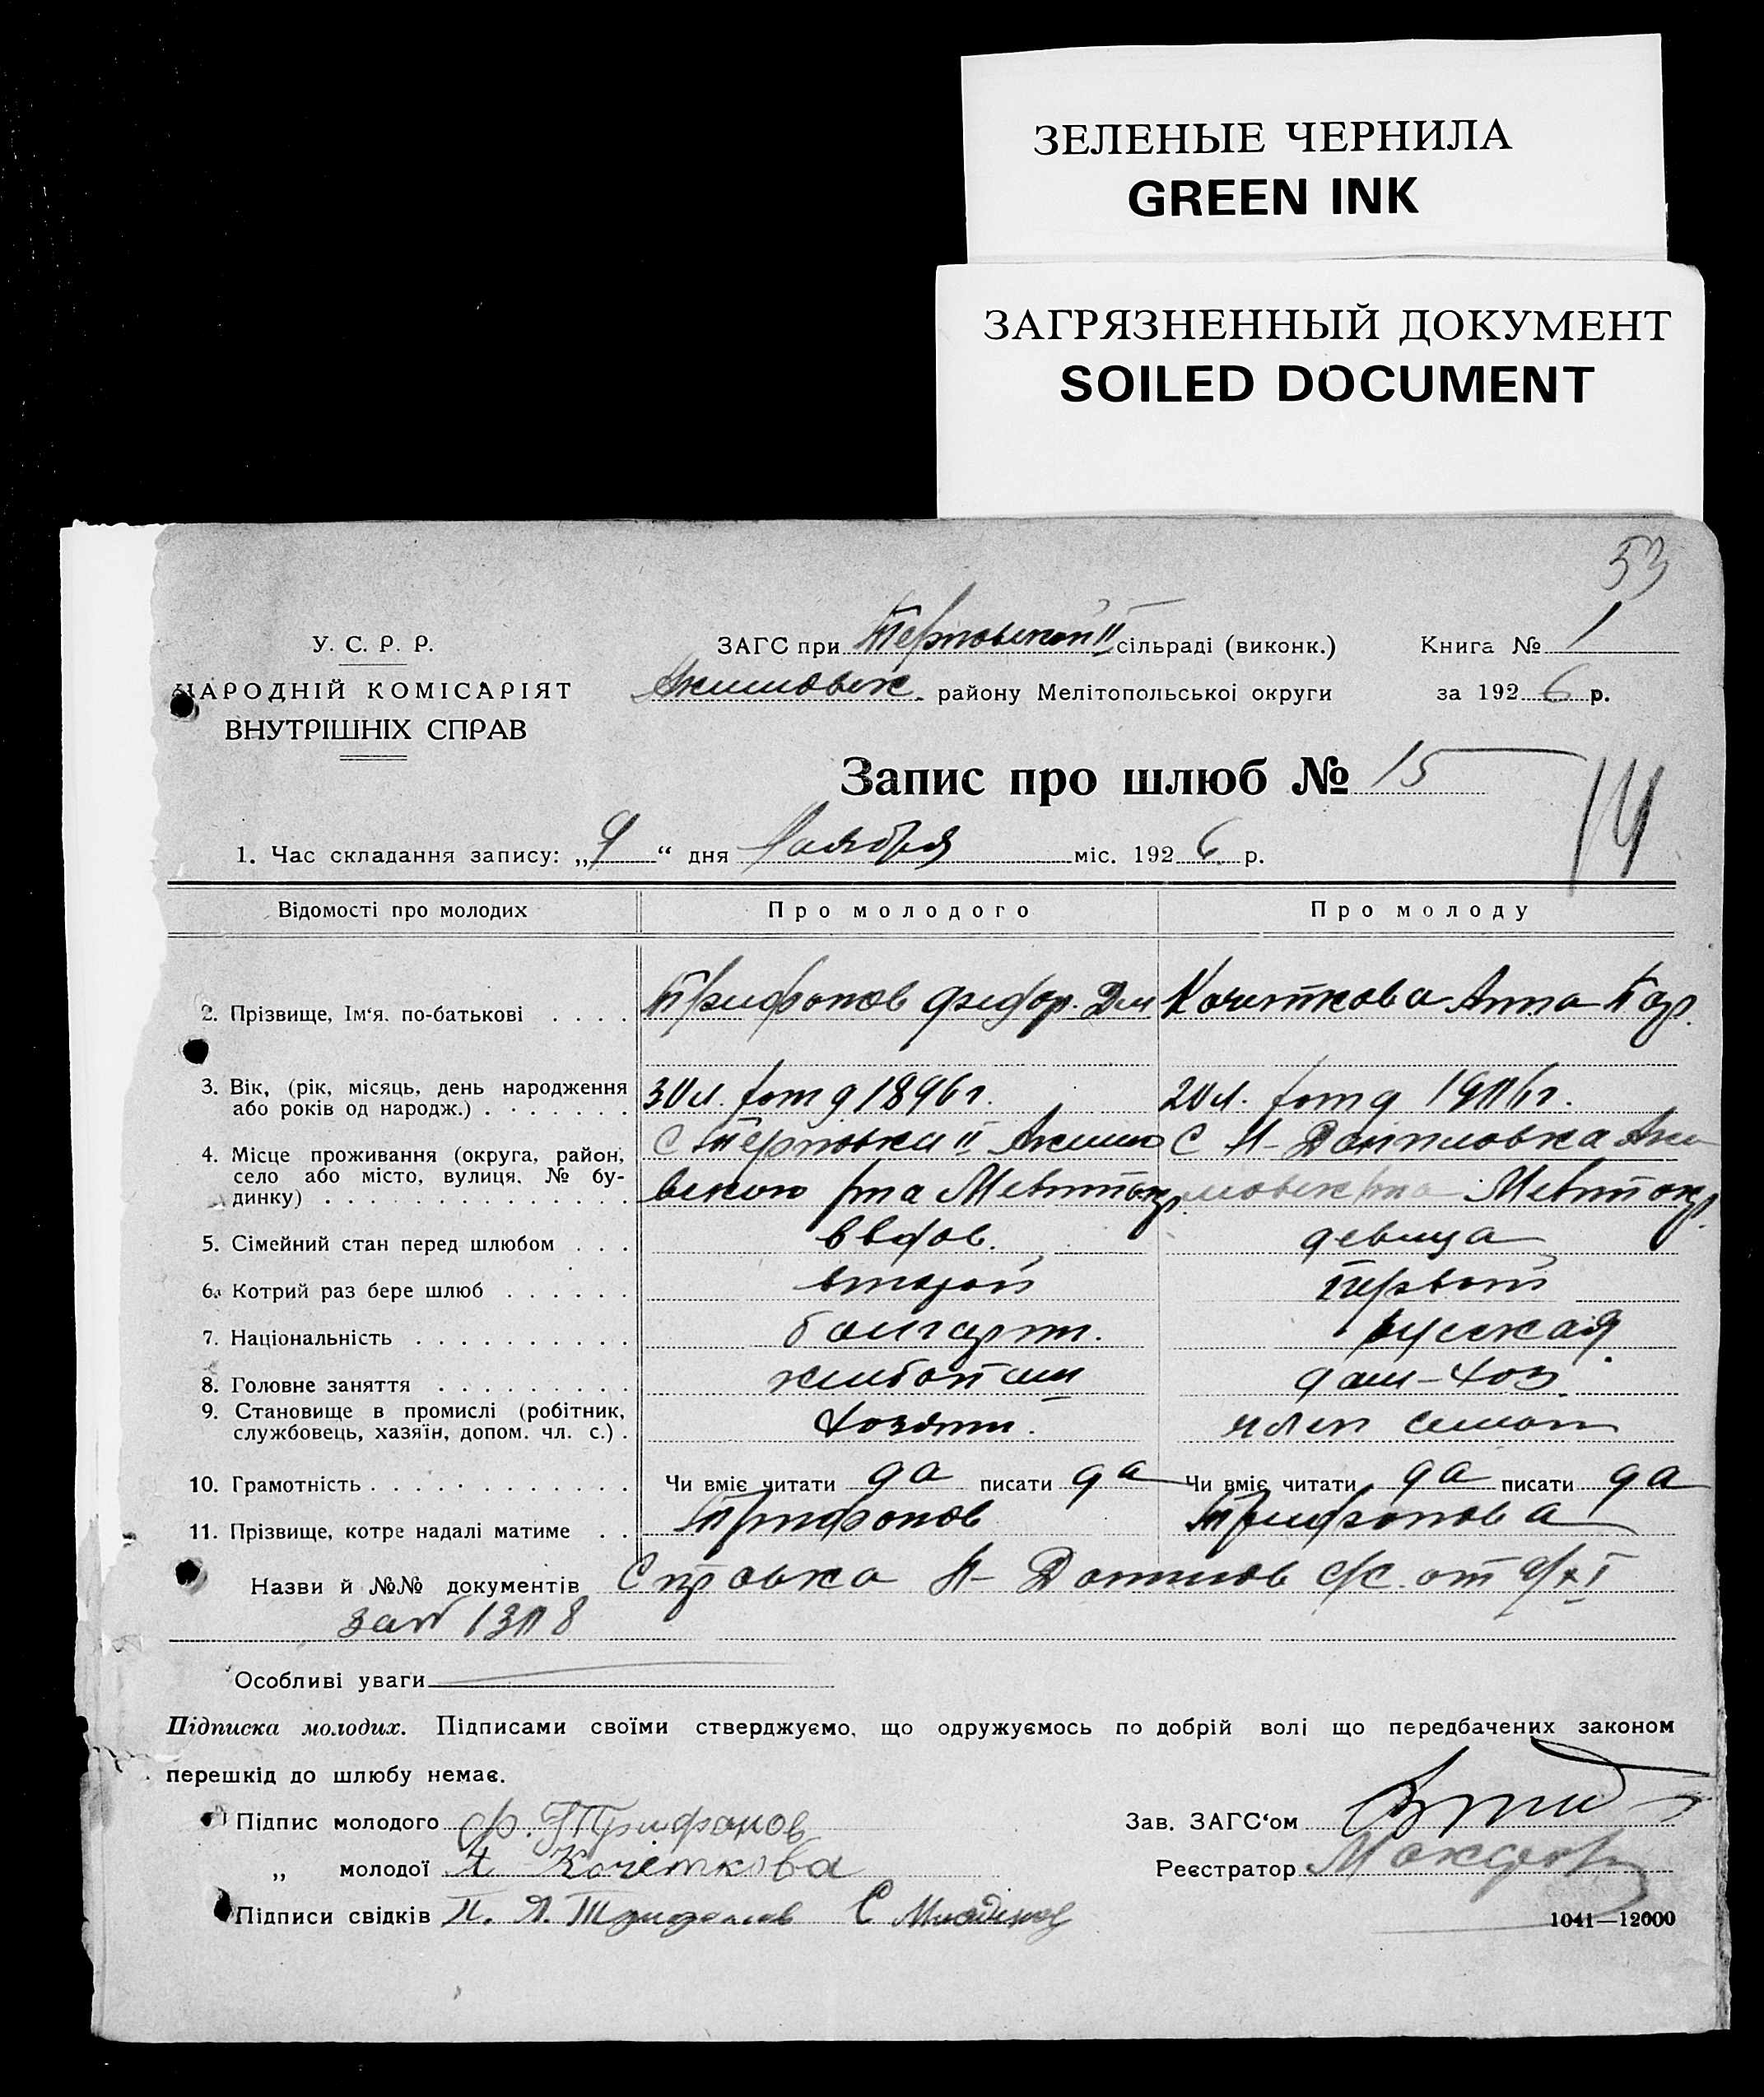 ЗЕЛЕНЫЕ ЧЕРНИЛА
GREEN INK
ЗАГРЯЗНЕННЫЙ ДОКУМЕНТ
SOILED DOCUMENT
53
У. С. Р. Р.
НАРОДНІЙ КОМІСАРІЯТ
ВНУТРІШНІХ СПРАВ
ЗАГС при Терновской II сільраді (виконк.)
Акимовск. району Мелітопольської округи
Книга № 1
за 1926 р.
Запис про шлюб № 15
14
1. Час складання запису: „9“ дня Ноября міс. 1926 р.
Відомості про молодих Про молодого Про молоду
2. Прізвище, Ім‘я, по-батькові . . . . Трифонов Федор. Кочеткова Анна
3. Вік, (рік, місяць, день народження або років од народж.) . . . . . . . 30 л. 1896 г. 20 л. 1906 г.
4. Місце проживання (округа, район, село або місто, вулиця, № будинку) . . . . С Терновка II Акимовского р-на Мелитокр. С Н-Даниловка Акимовск р-на Мелитокр.
5. Сімейний стан перед шлюбом . . . вдов. девица
6. Котрий раз бере шлюб . . . . . . второй первый
7. Національність . . . . . . . . . . болгарин. русская
8. Головне заняття . . . . . . . . . хлебопаш дом-хоз.
9. Становище в промислі (робітник, службовець, хазяїн, допом. чл. с.) . хозяин. член семьи
10. Грамотність . . . . . . . . . . . . Чи вміє читати да писати да Чи вміє читати да писати да
11. Прізвище, котре надалі матиме . . Трифонов Трифонова
Назви й №№ документів Справка Н-Данилов с/с. от 9/XI
за № 1308
Особливі уваги
Підписка молодих. Підписами своїми стверджуємо, що одружуємось по добрій волі що передбачених законом
перешкід до шлюбу немає.
Підпис молодого Ф. Трифонов Зав. ЗАГС‘ом
„ молодої А Кочеткова Реєстратор
Підписи свідків П. Я. Трифонов С
1041—12000